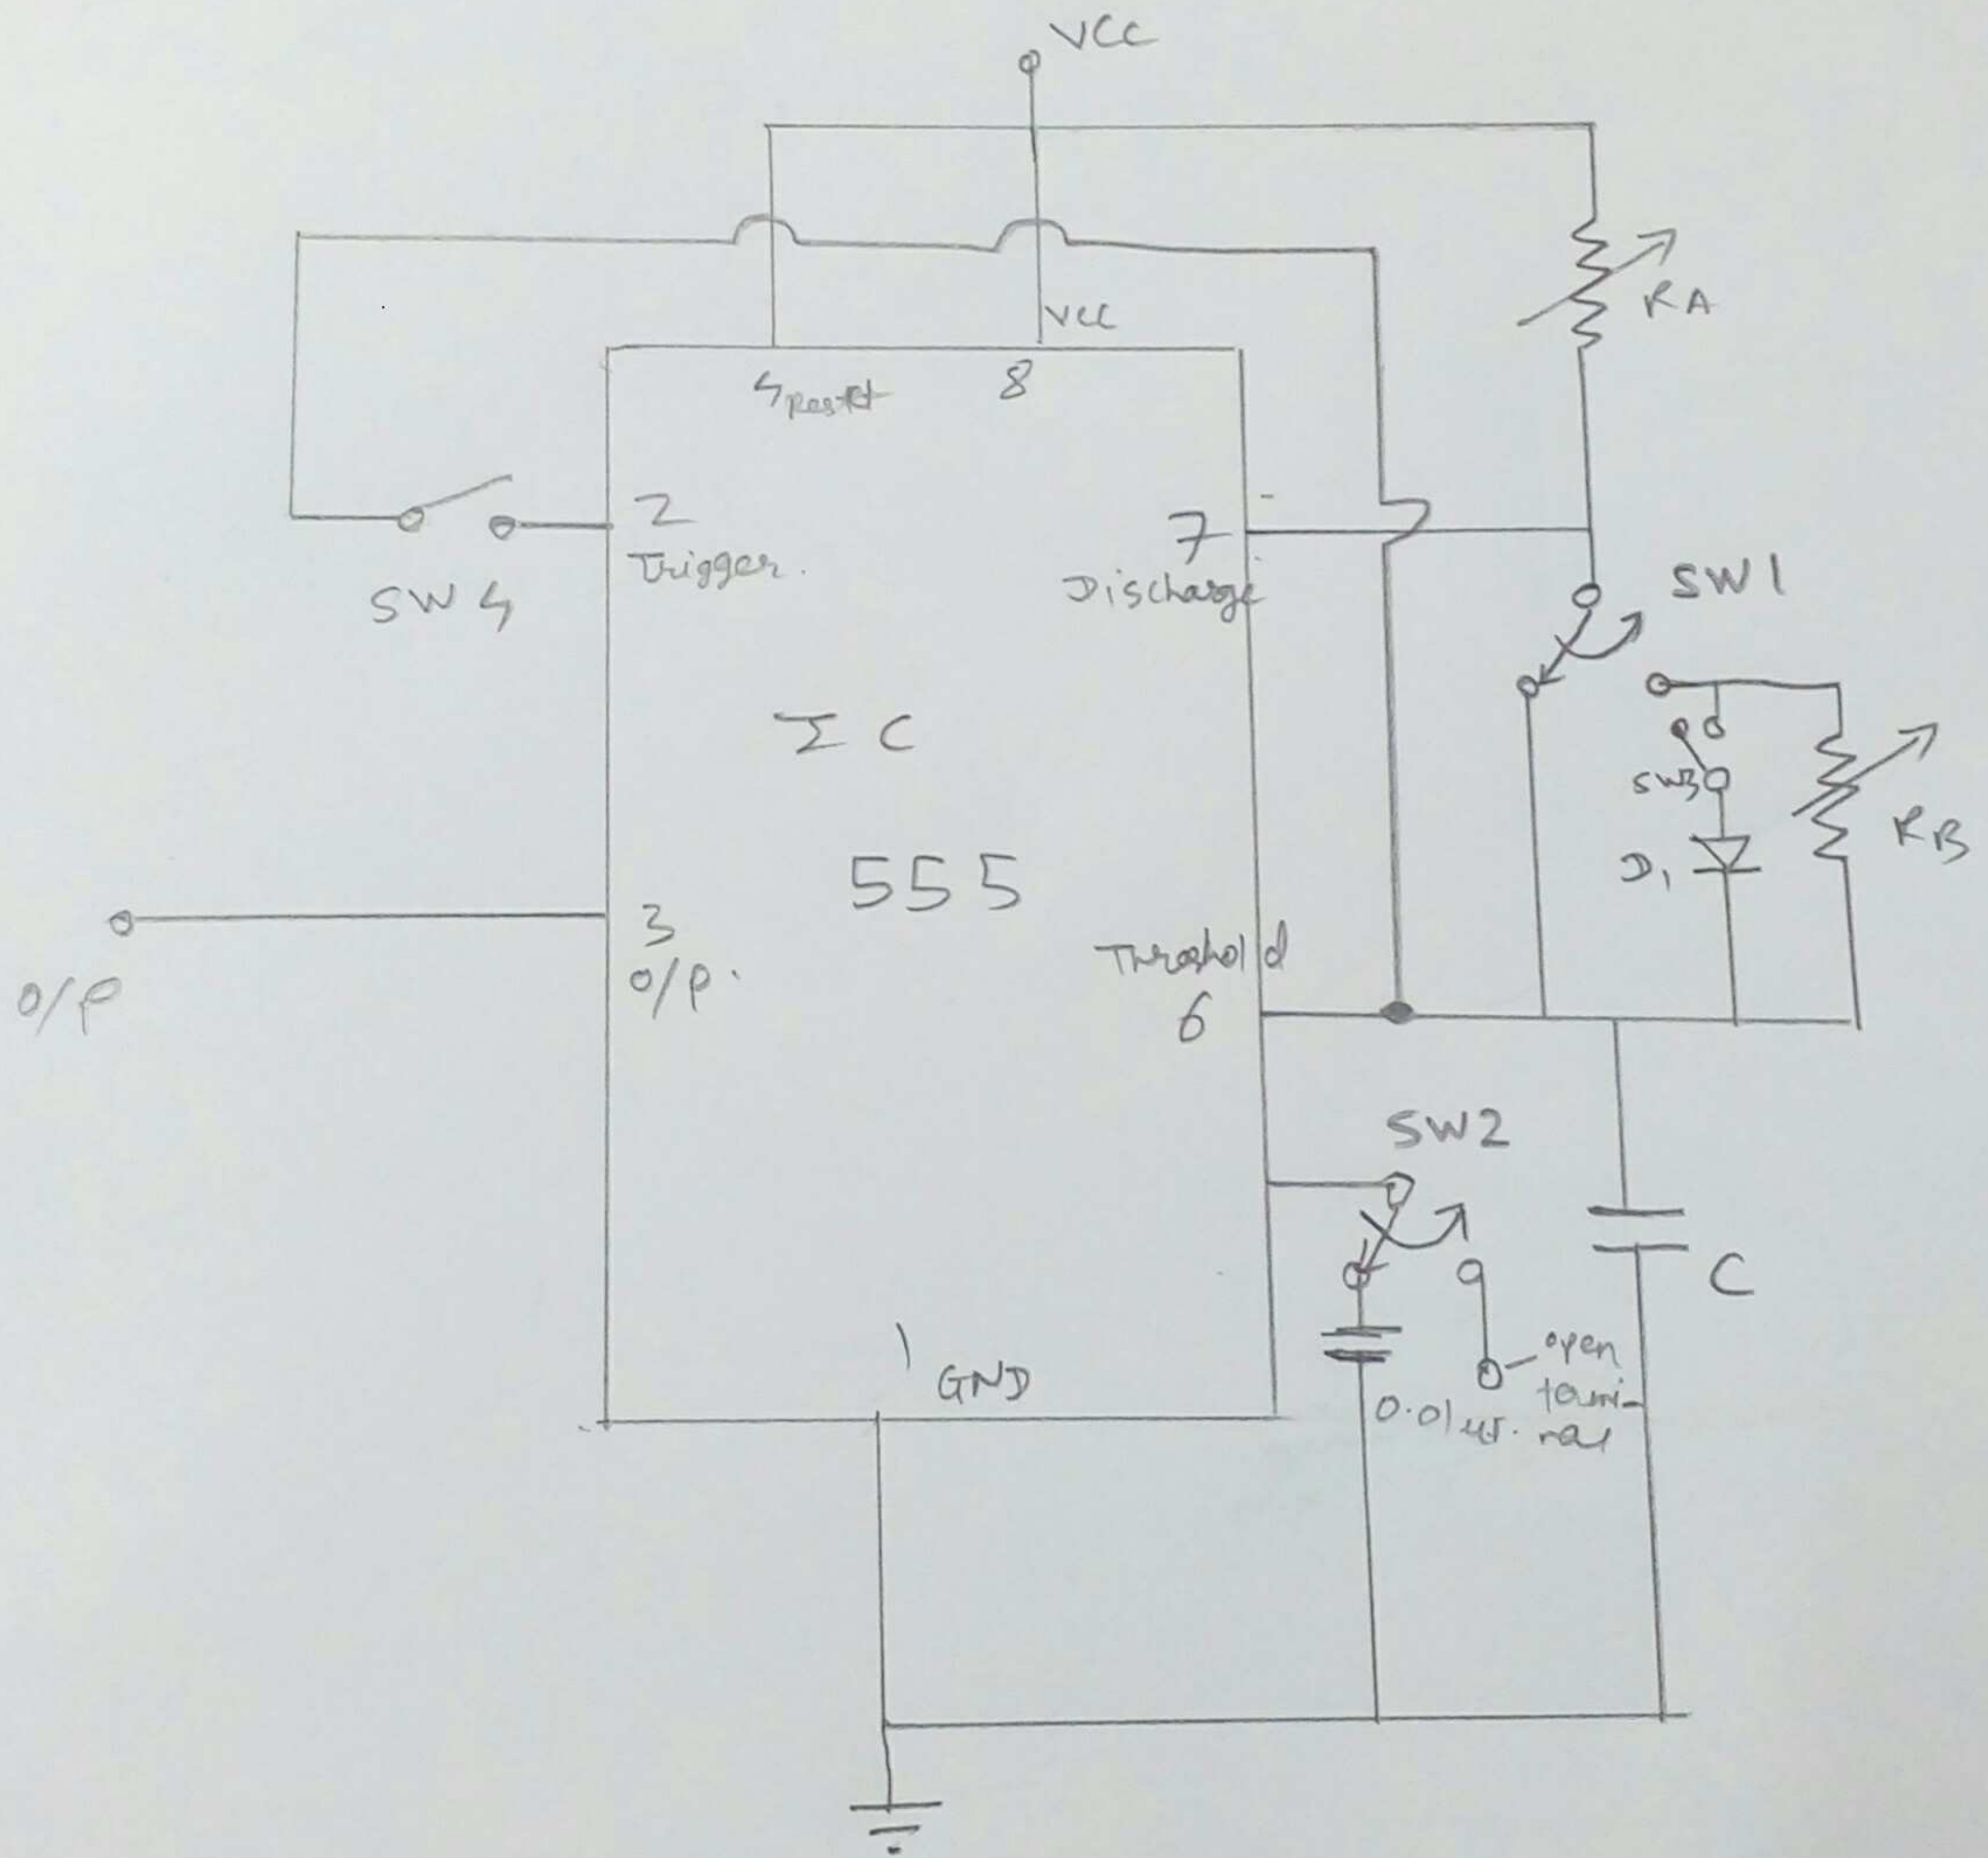 VCC
RA
VCC
4 Reset
8
2
Trigger.
SW4
7
Discharge
SW1
IC
SW3
RB
555
D1
3
O/P.
O/P
Threshold
6
SW2
C
open
termi-
nal
0.01
1
GND